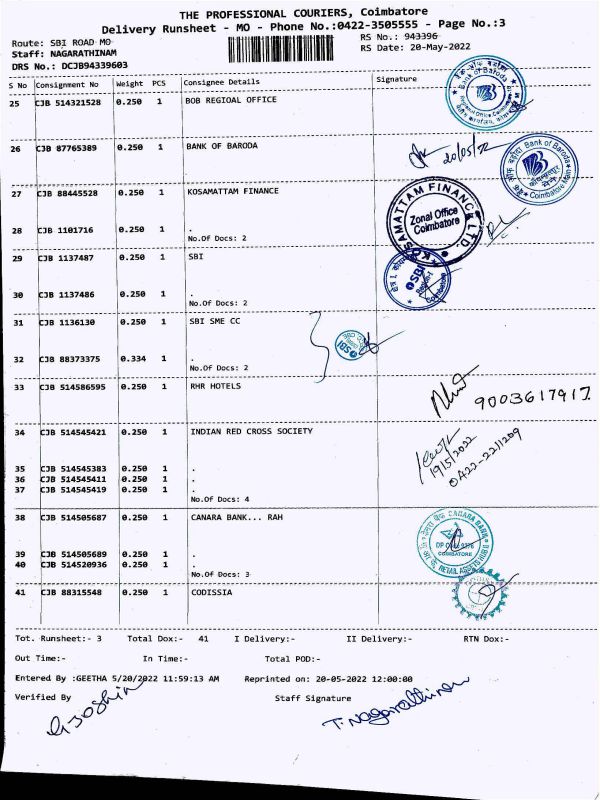 THE PROFESSIONAL COURIERS, Coimbatore
Delivery Runsheet - MO - Phone No.:0422-3505555 - Page No.:3
Route: SBI ROAD MO
RS No.: 943396
Staff: NAGARATHINAM
RS Date: 20-May-2022
DRS No.: DCJB94339603
S No Consignment No Weight PCS Consignee Details Signature
25 CJB 514321528 0.250 1 BOB REGIOAL OFFICE
Bank of Baroda
26 CJB 87765389 0.250 1 BANK OF BARODA
20/05/22
Bank of Baroda
Coimbatore Main
27 CJB 88445528 0.250 1 KOSAMATTAM FINANCE
KOSAMATTAM FINANCE LTD.
Zonal Office
Coimbatore
28 CJB 1101716 0.250 1 .
No.Of Docs: 2
29 CJB 1137487 0.250 1 SBI
SBI
Coimbatore
30 CJB 1137486 0.250 1 .
No.Of Docs: 2
31 CJB 1136130 0.250 1 SBI SME CC
SBI
32 CJB 88373375 0.334 1 .
No.Of Docs: 2
33 CJB 514586595 0.250 1 RHR HOTELS
9003617917
34 CJB 514545421 0.250 1 INDIAN RED CROSS SOCIETY
19/5/2022
OA22-22/1209
35 CJB 514545383 0.250 1 .
36 CJB 514545411 0.250 1 .
37 CJB 514545419 0.250 1 .
No.Of Docs: 4
38 CJB 514505687 0.250 1 CANARA BANK... RAH
CANARA BANK
COIMBATORE
RETAIL ASSETS HUB
39 CJB 514505689 0.250 1 .
40 CJB 514520936 0.250 1 .
No.Of Docs: 3
41 CJB 88315548 0.250 1 CODISSIA
Tot. Runsheet:- 3 Total Dox:- 41 I Delivery:- II Delivery:- RTN Dox:-
Out Time:- In Time:- Total POD:-
Entered By :GEETHA 5/20/2022 11:59:13 AM Reprinted on: 20-05-2022 12:00:00
Verified By Staff Signature
T. Nagarathinam